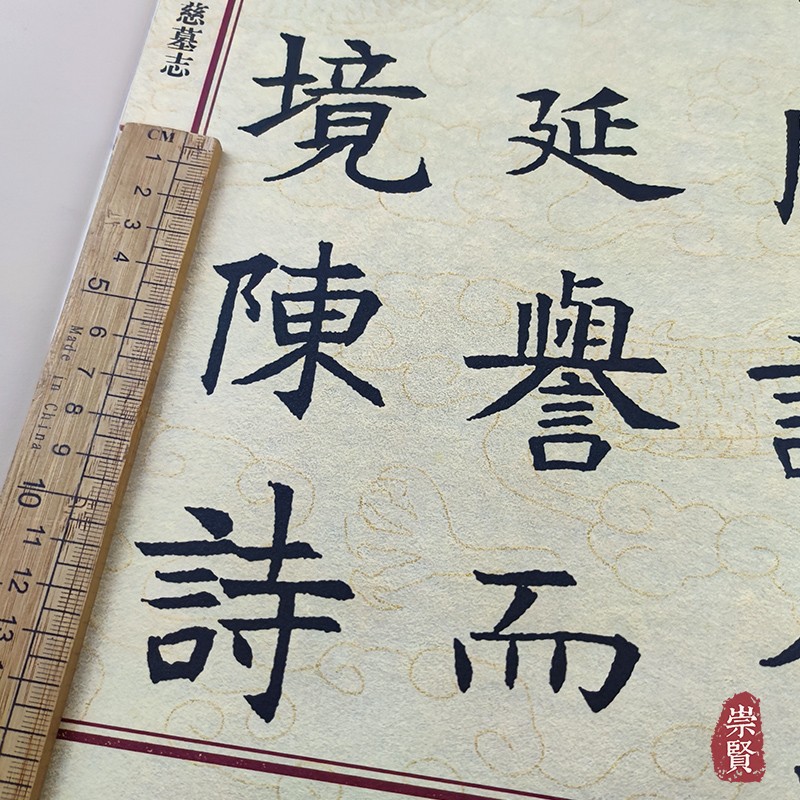 延譽而
境陳詩
慈墓志
CM
1 2 3 4 5 6 7 8 9 10 11 12 13
Made in China
崇賢